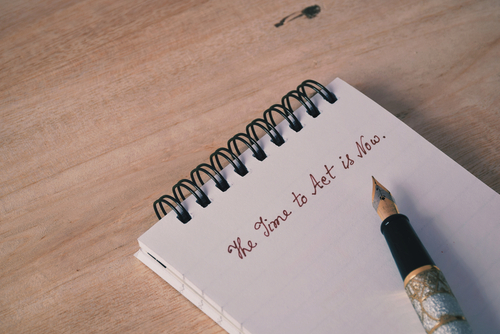 The Time to Act is Now.